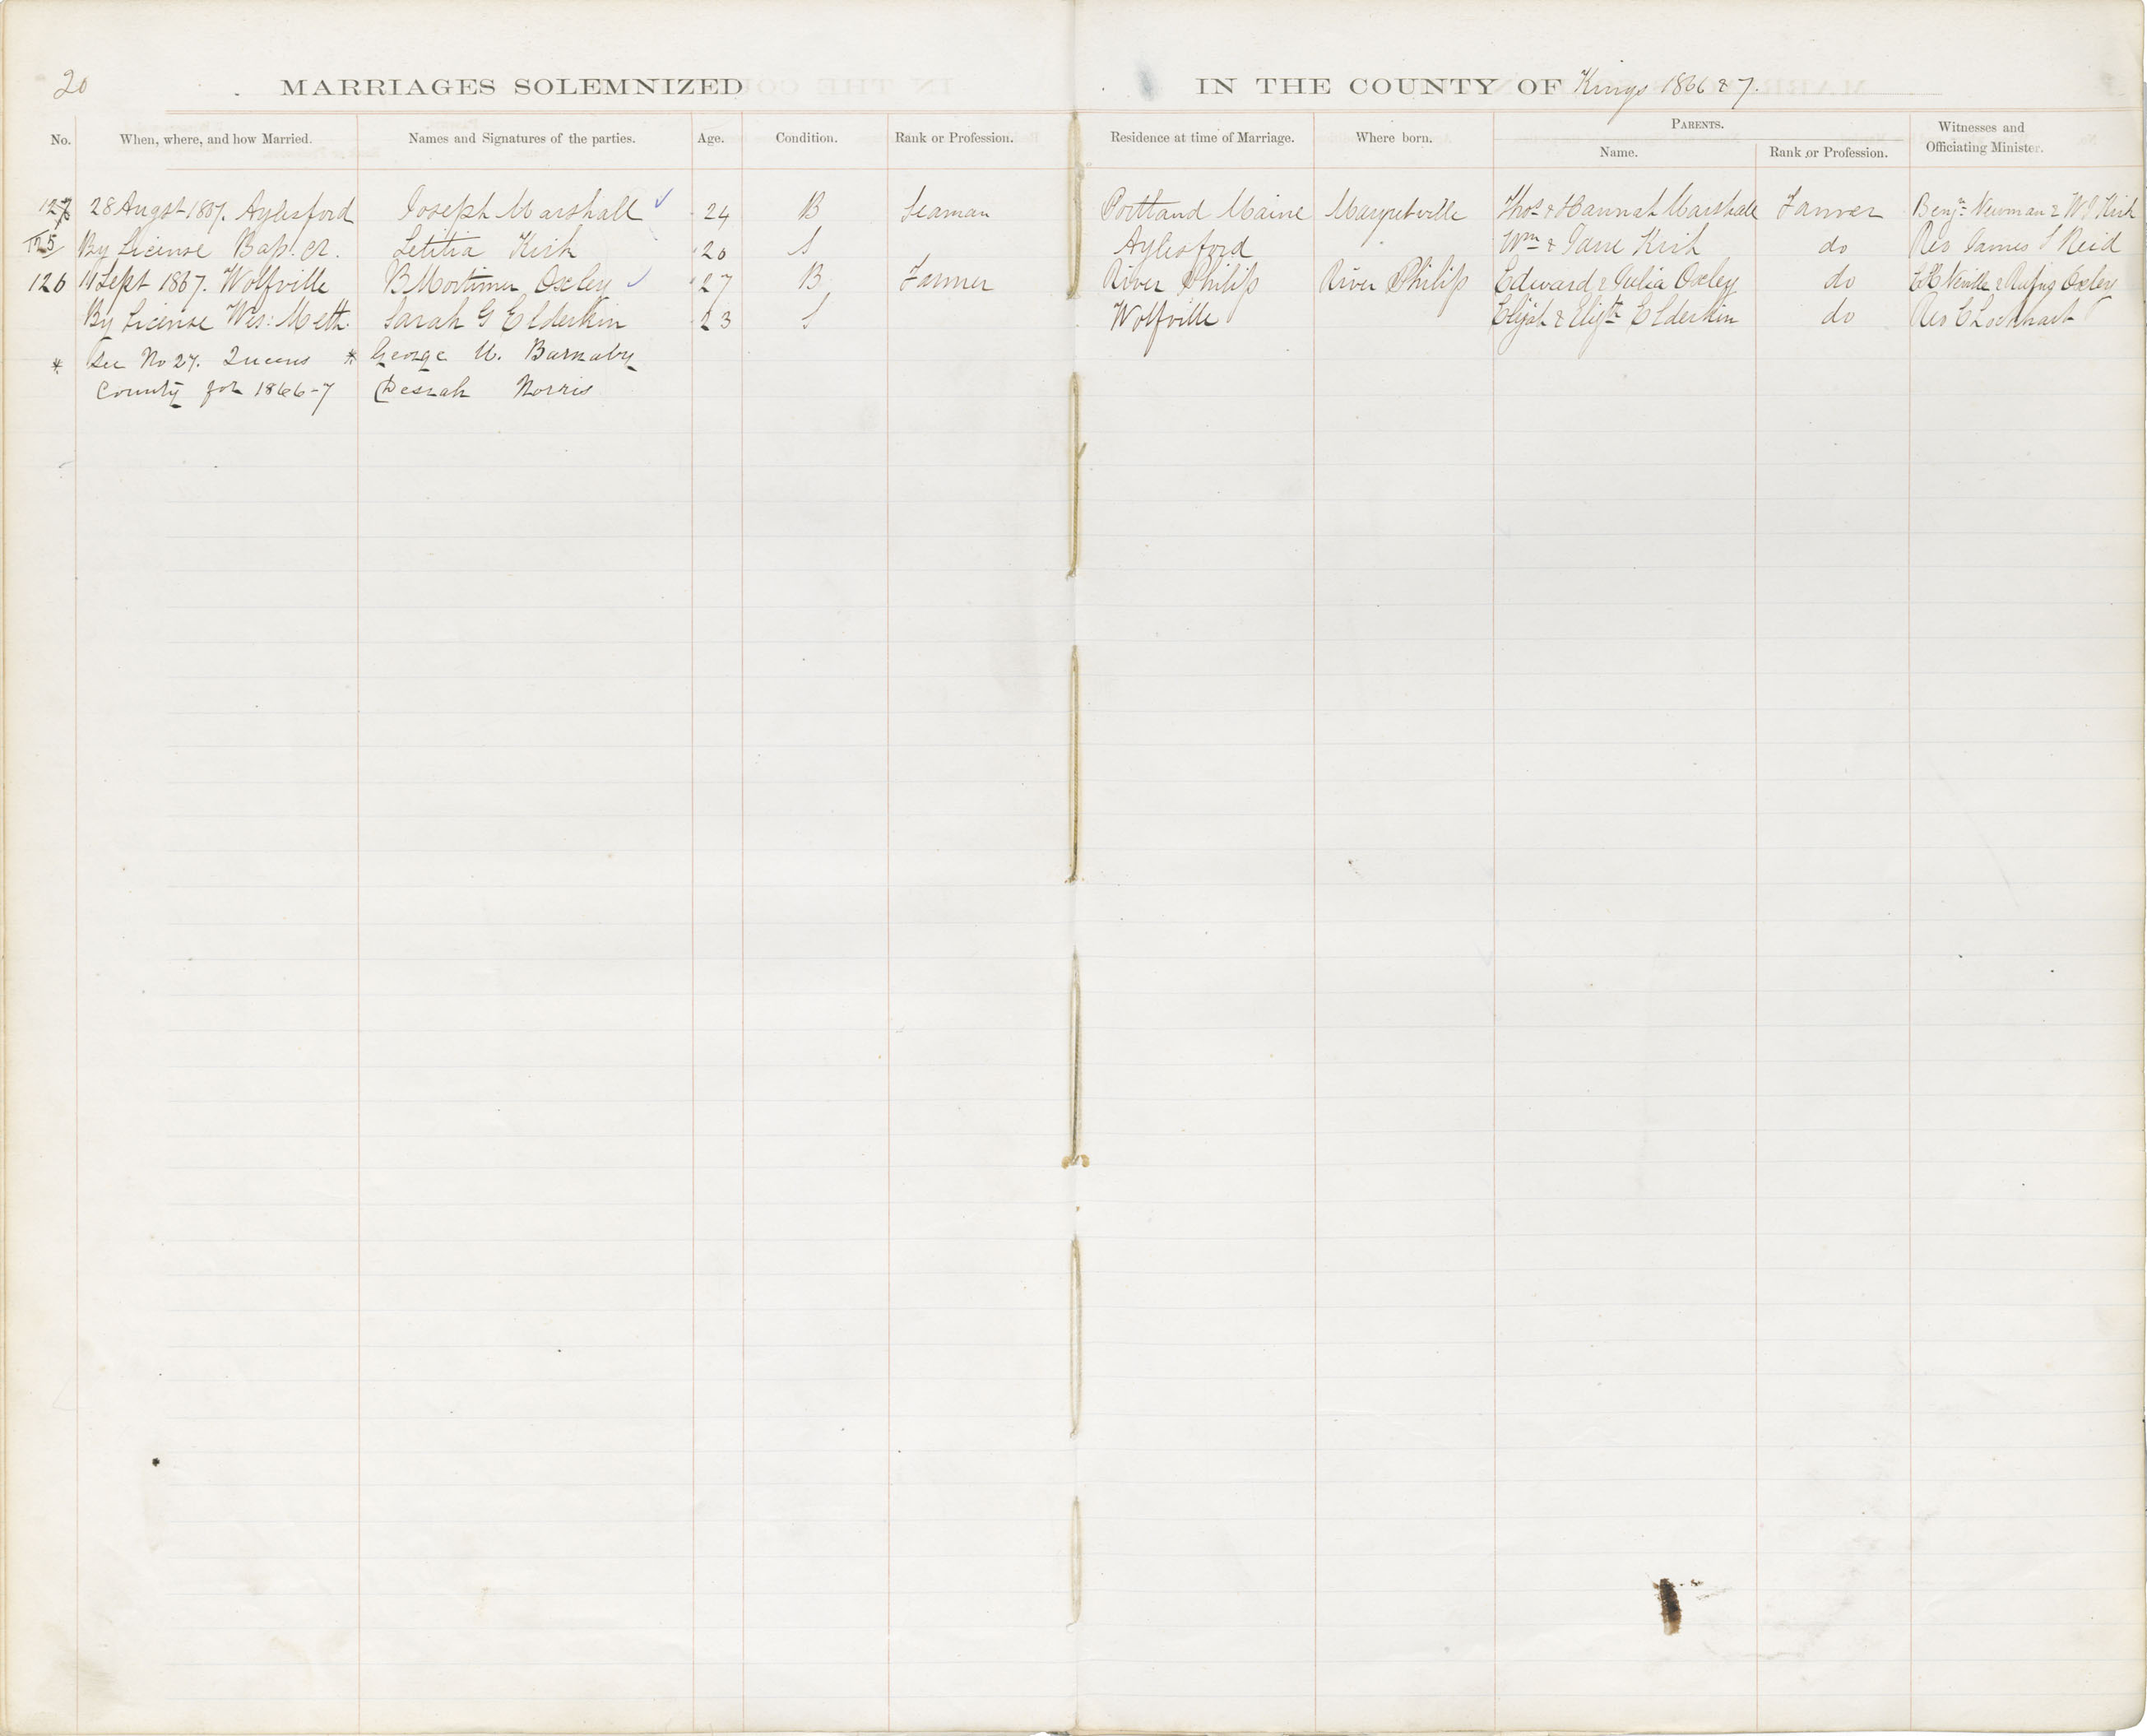 20
MARRIAGES SOLEMNIZED IN THE COUNTY OF Kings 1866 & 7.
No. When, where, and how Married. Names and Signatures of the parties. Age. Condition. Rank or Profession. Residence at time of Marriage. Where born. PARENTS. Name. Rank or Profession. Witnesses and Officiating Minister.
127 28 Augst 1867. Aylesford Joseph Marshall 24 B Seaman Portland Maine Margretville Thos & Hannah Marshall Farmer Benjn Newman & W J Kirk
125 By License Bap. Ch. Letitia Kirk 20 S Aylesford Wm & Jane Kirk do Rev James S Reid
126 11 Sept 1867. Wolfville B Mortimer Oxley 27 B Farmer River Philip River Philip Edward & Julia Oxley do & Rufus Oxley
By License Wes: Meth. Sarah G Elderkin 23 S Wolfville Elijah & Elizth Elderkin do Rev C Lockhart
* See No 27. Queens * George U. Barnaby
County for 1866-7 Desiah Norris